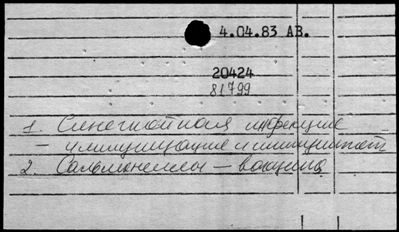 4.04.83 АВ.
20424
81799
1. Синегнойная инфекция
– иммунизация и иммунитет
2. Сальмонеллы – вакцина